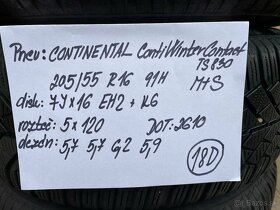 Pneu: CONTINENTAL ContiWinterContact
TS830
205/55 R16 91H
M+S
disk: 7Jx16 EH2+ KG
rozteč: 5x120 DOT: 2610
dezén: 5,7 5,7 6,2 5,9
18D